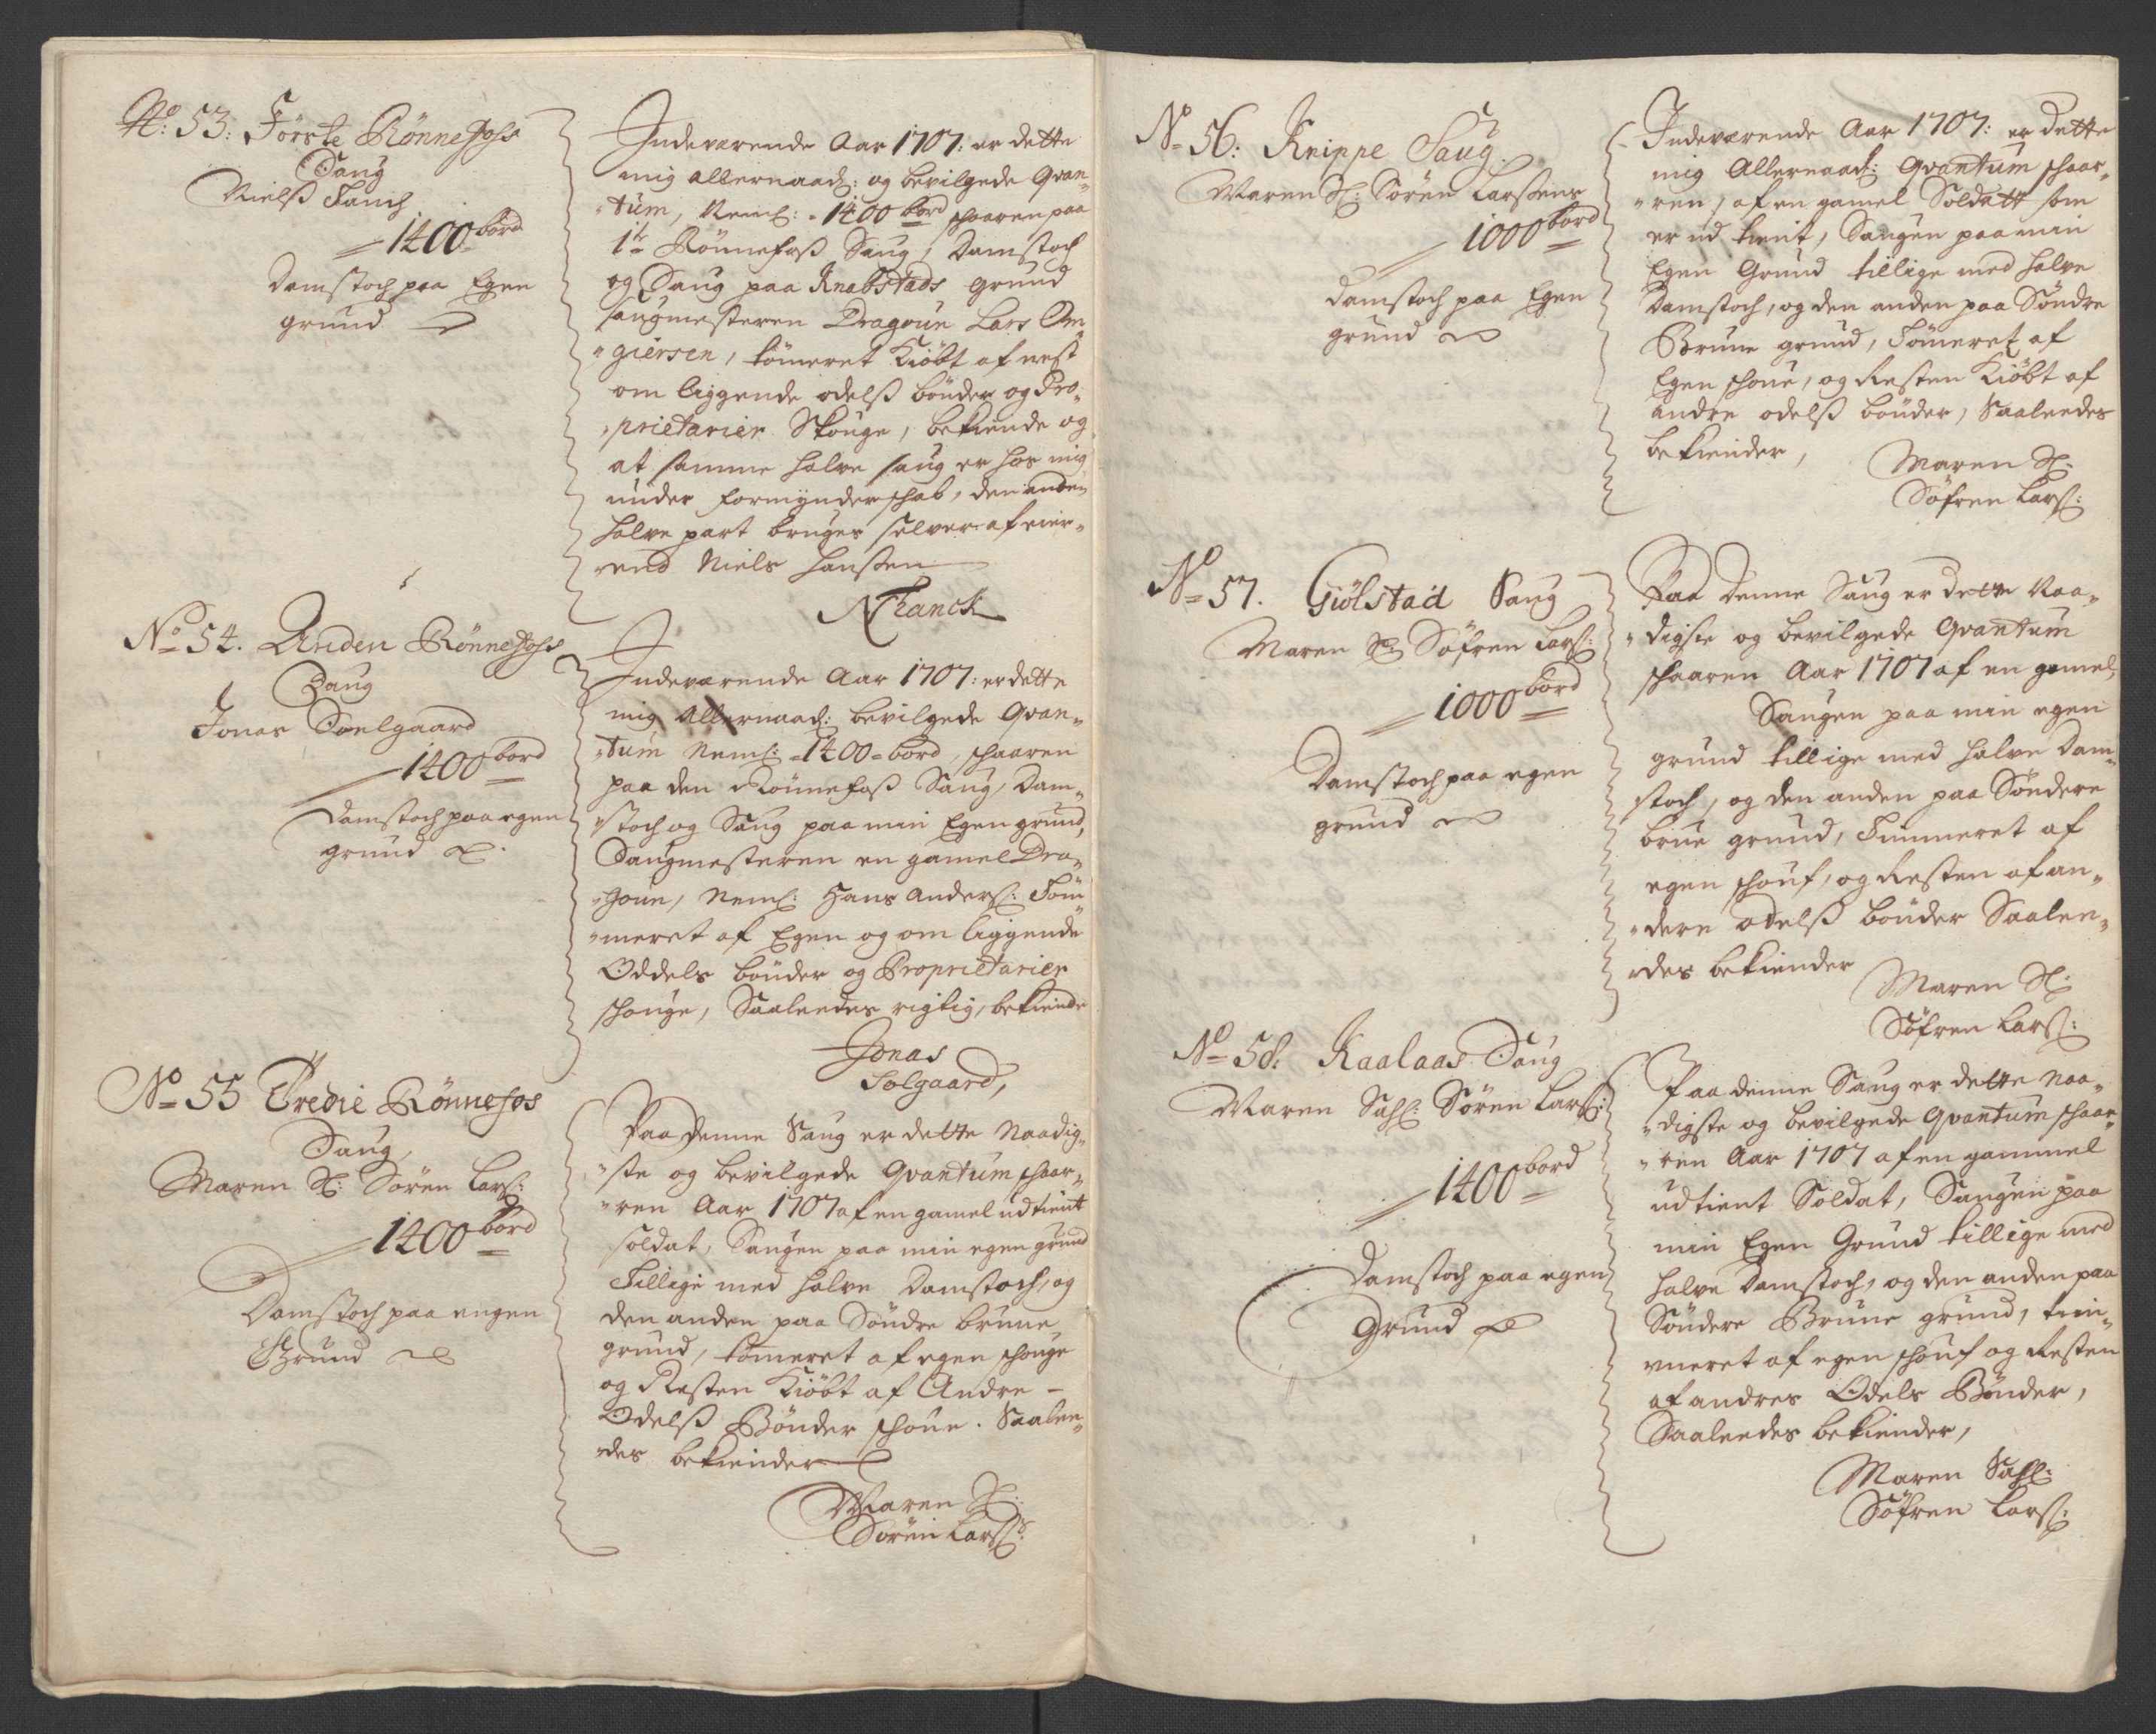 No: 53: Förste Rönnefoss
Saug
Nielß Fanch
1400 bord
Damstoch paa Egen
grund
Indeværende Aar 1707: er dette
mig allernaad: og bevilgede Qvan-
tum, Neml: 1400 bord schaaren paa
1te Rönnefoss Saug, Damstoch
og Saug paa Knabstads grund
saugmesteren Dragoun Lars Om-
giersen, tömeret Kiöbt af nest
om liggende odelß bönder og Pro-
prietarier Skouge, bekiende og
at samme halve saug er hos mig
under formynderschab, den anden
halve part bruges selver af eier-
end Niels Hanßen
NFranck
No 54. Anden Rönnefoss
Saug
Jonas Soelgaard
1400 bord
Damstoch paa egen
grund
Indeværende Aar 1707: er dette
mig Allernaad: bevilgede Qvan-
tum Neml: 1400 bord, schaaren
paa den Rönnefoß Saug, Dam-
stoch og Saug paa min Egen grund,
Saugmesteren en gamel Dra-
goun, Neml: Hans Anders: Töm-
meret af Egen og om liggende
Oddels bönder og Proprietarier
schouge, Saaleedes rigtig, bekiende
Jonas
Solgaard,
No 55 Tredie Rönnefos
Saug,
Maren Sl: Sören Lars:
1400 bord
Damstoch paa eegen
Grund
Paa denne Saug er dette Naadig-
ste og bevilgede Qvantum schaar-
ren Aar 1707 af en gamel udtient
soldat, Saugen paa min egen grund
Tillige med halve Damstoch, og
den anden paa Söndre brune
grund, tömeret af egen schouge
og Resten Kiöbt af Andre
Odelß Bönder schoue. Saalee-
des bekiender
Maren Sl:
Sören Larß:
No 56: Knippe Saug.
Maren Sl: Sören Larßens
1000 bord
Damstoch paa Egen
grund
Indeværende Aar 1707: er dette
mig Allernaad: Qvantum schaar-
ren, af en gamel Soldatt som
er ud tient, Saugen paa min
Egen Grund tillige med halve
Damstoch, og den anden paa Söndre
Brune grund, Tömeret af
Egen schoue, og Resten Kiöbt af
andre odelß bönder, Saaleedes
bekiender,
Maren Sl:
Söfren Larß:
No 57. Giölstad Saug
Maren Sl: Söfren Larß:
1000 bord
Damstoch paa egen
grund
Paa denne Saug er dette Naa-
digste og bevilgede Qvantum
schaaren Aar 1707 af en gamel,
Saugen paa min egen
grund tillige med halve Dam-
stoch, og den anden paa Söndere
brue grund, Timmeret af
egen schouf, og Resten af an-
dere odelß bönder Saalee-
des bekiender
Maren Sl:
Söfren Larß:
No 58. Kaalaas Saug
Maren Sahl: Sören Larß:
1400 bord
Damstoch paa egen
Grund
Paa denne Saug er dette Naa-
digste og bevilgede Qvantum schaar-
ren Aar 1707 af en gammel
udtient Soldat, Saugen paa
min Egen Grund tillige med
halve Damstoch, og den anden paa
Söndere Brune grund, tim-
meret af egen schouf og Resten
af andres Odels Bönder,
Saaleedes bekiender,
Maren Sahl:
Söfren Larß: